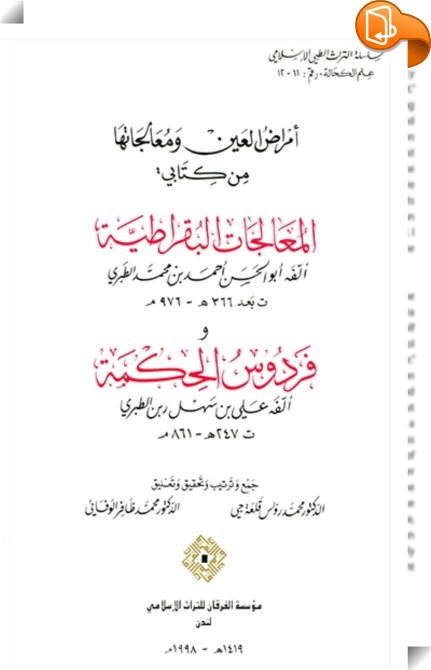 سلسلة التراث الطبي الإسلامي
علم الكحالة - رقم : ١١ - ١٢
أمراض العين ومعالجاتها
من كتابي :
المعالجات البقراطية
ألفه أبو الحسن أحمد بن محمد الطبري
ت بعد ٣٦٦ هـ - ٩٧٦ م
و
فردوس الحكمة
ألفه علي بن سهل ربن الطبري
ت ٢٤٧ هـ - ٨٦١ م
جمع وترتيب وتحقيق وتعليق
الدكتور محمد رواس قلعة جي الدكتور محمد ظافر الوفائي
مؤسسة الفرقان للتراث الإسلامي
لندن
١٤١٩ هـ - ١٩٩٨ م